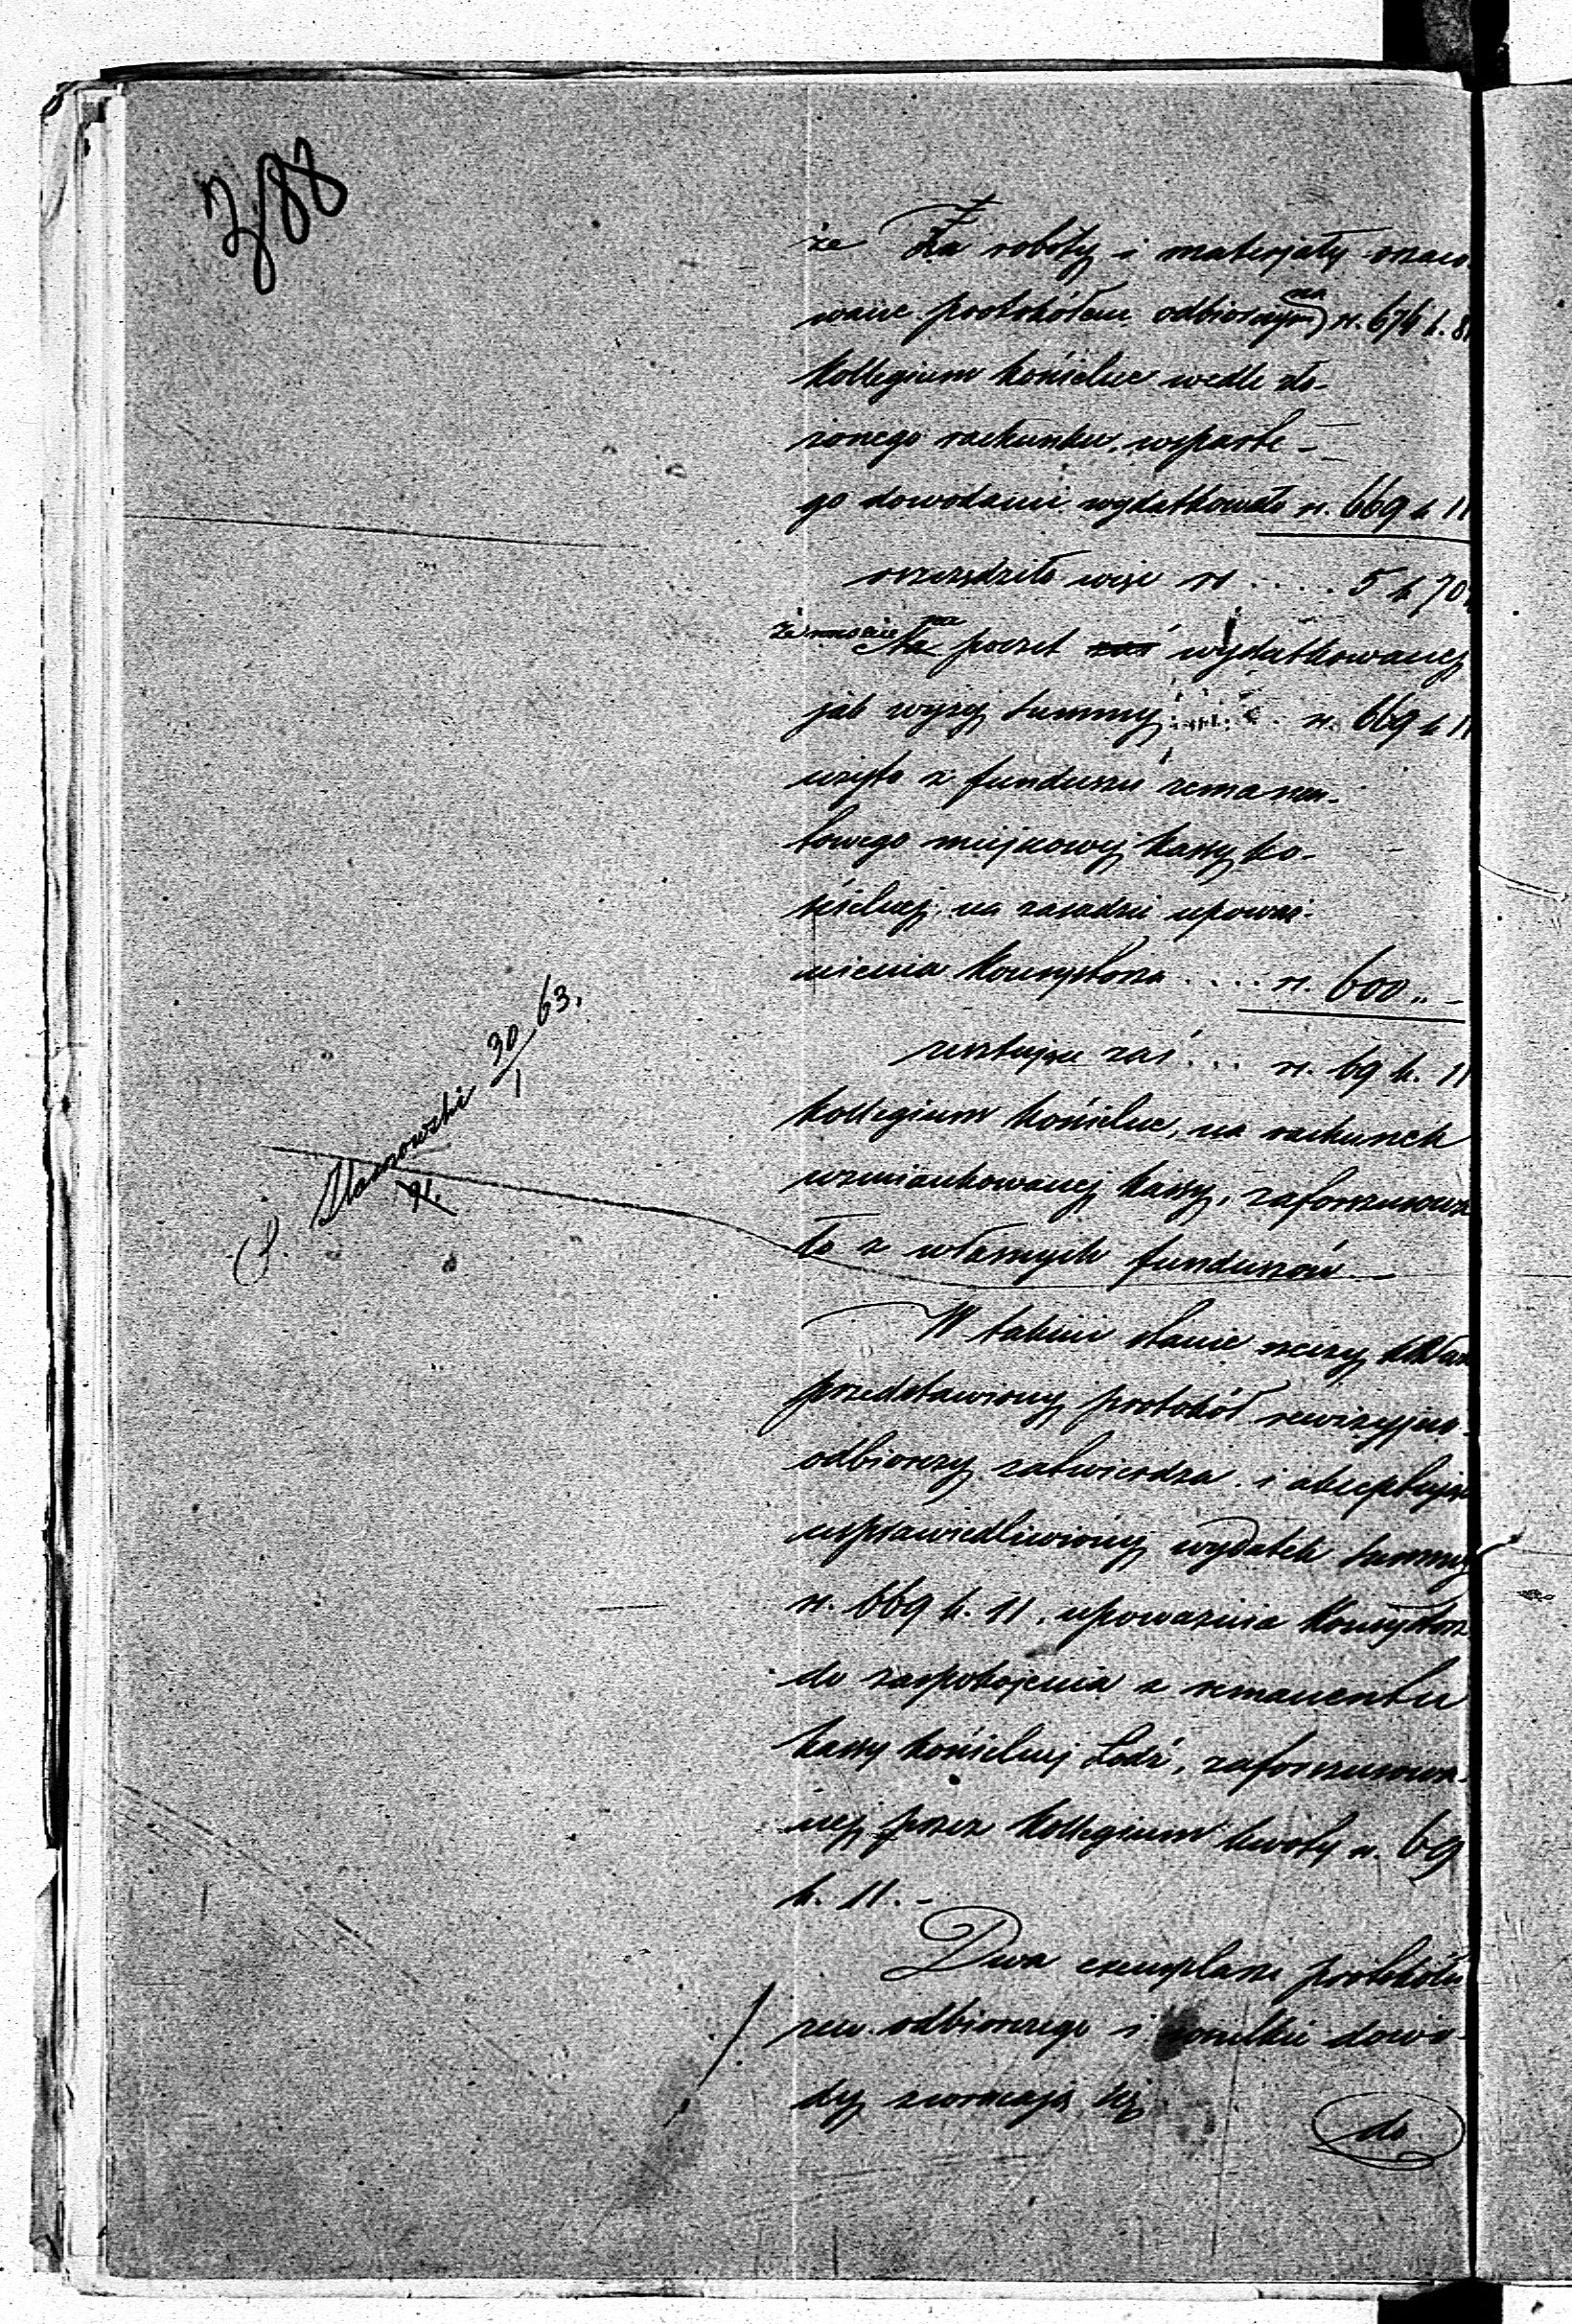 188
że Za roboty i materjały oszaco-
wane protokółem odbiorczym na rs. 674 k. 81
Kollegium kościelne wedle zło-
żonego rachunku, wsparte-
go dowodami wydatkowało rs. 669 k 11
oszczędziło więc rs .... 5 k 70
że na poczet zaś wydatkowanej
jak wyżej summy rs. 669 k 11
użyto z funduszu remanen-
towego miejscowej kassy ko-
ścielnej, na zasadzie upoważ-
nienia Konsystorza .... rs. 600 " -
resztujące zaś ... rs. 69 k. 11
Kollegium kościelne, na rachunek
wzmiankowanej kassy, zaforszusowa
ło z własnych funduszów. —
30/1 63.
W takim stanie rzeczy
przedstawiony protokół rewizyjno-
odbiorczy zatwierdza i akceptując
usprawiedliwiony wydatek summy
rs. 669 k. 11. upoważnia Konsystorz
do zaspokojenia z remanentu
kassy kościelnej Łódź, zaforszusowa-
nej przez Kollegium kwoty rs. 69
k. 11. -
Dwa exemplarze protokółu
rew. odbiorczego i wszelkie dowo-
dy zwracają się
do